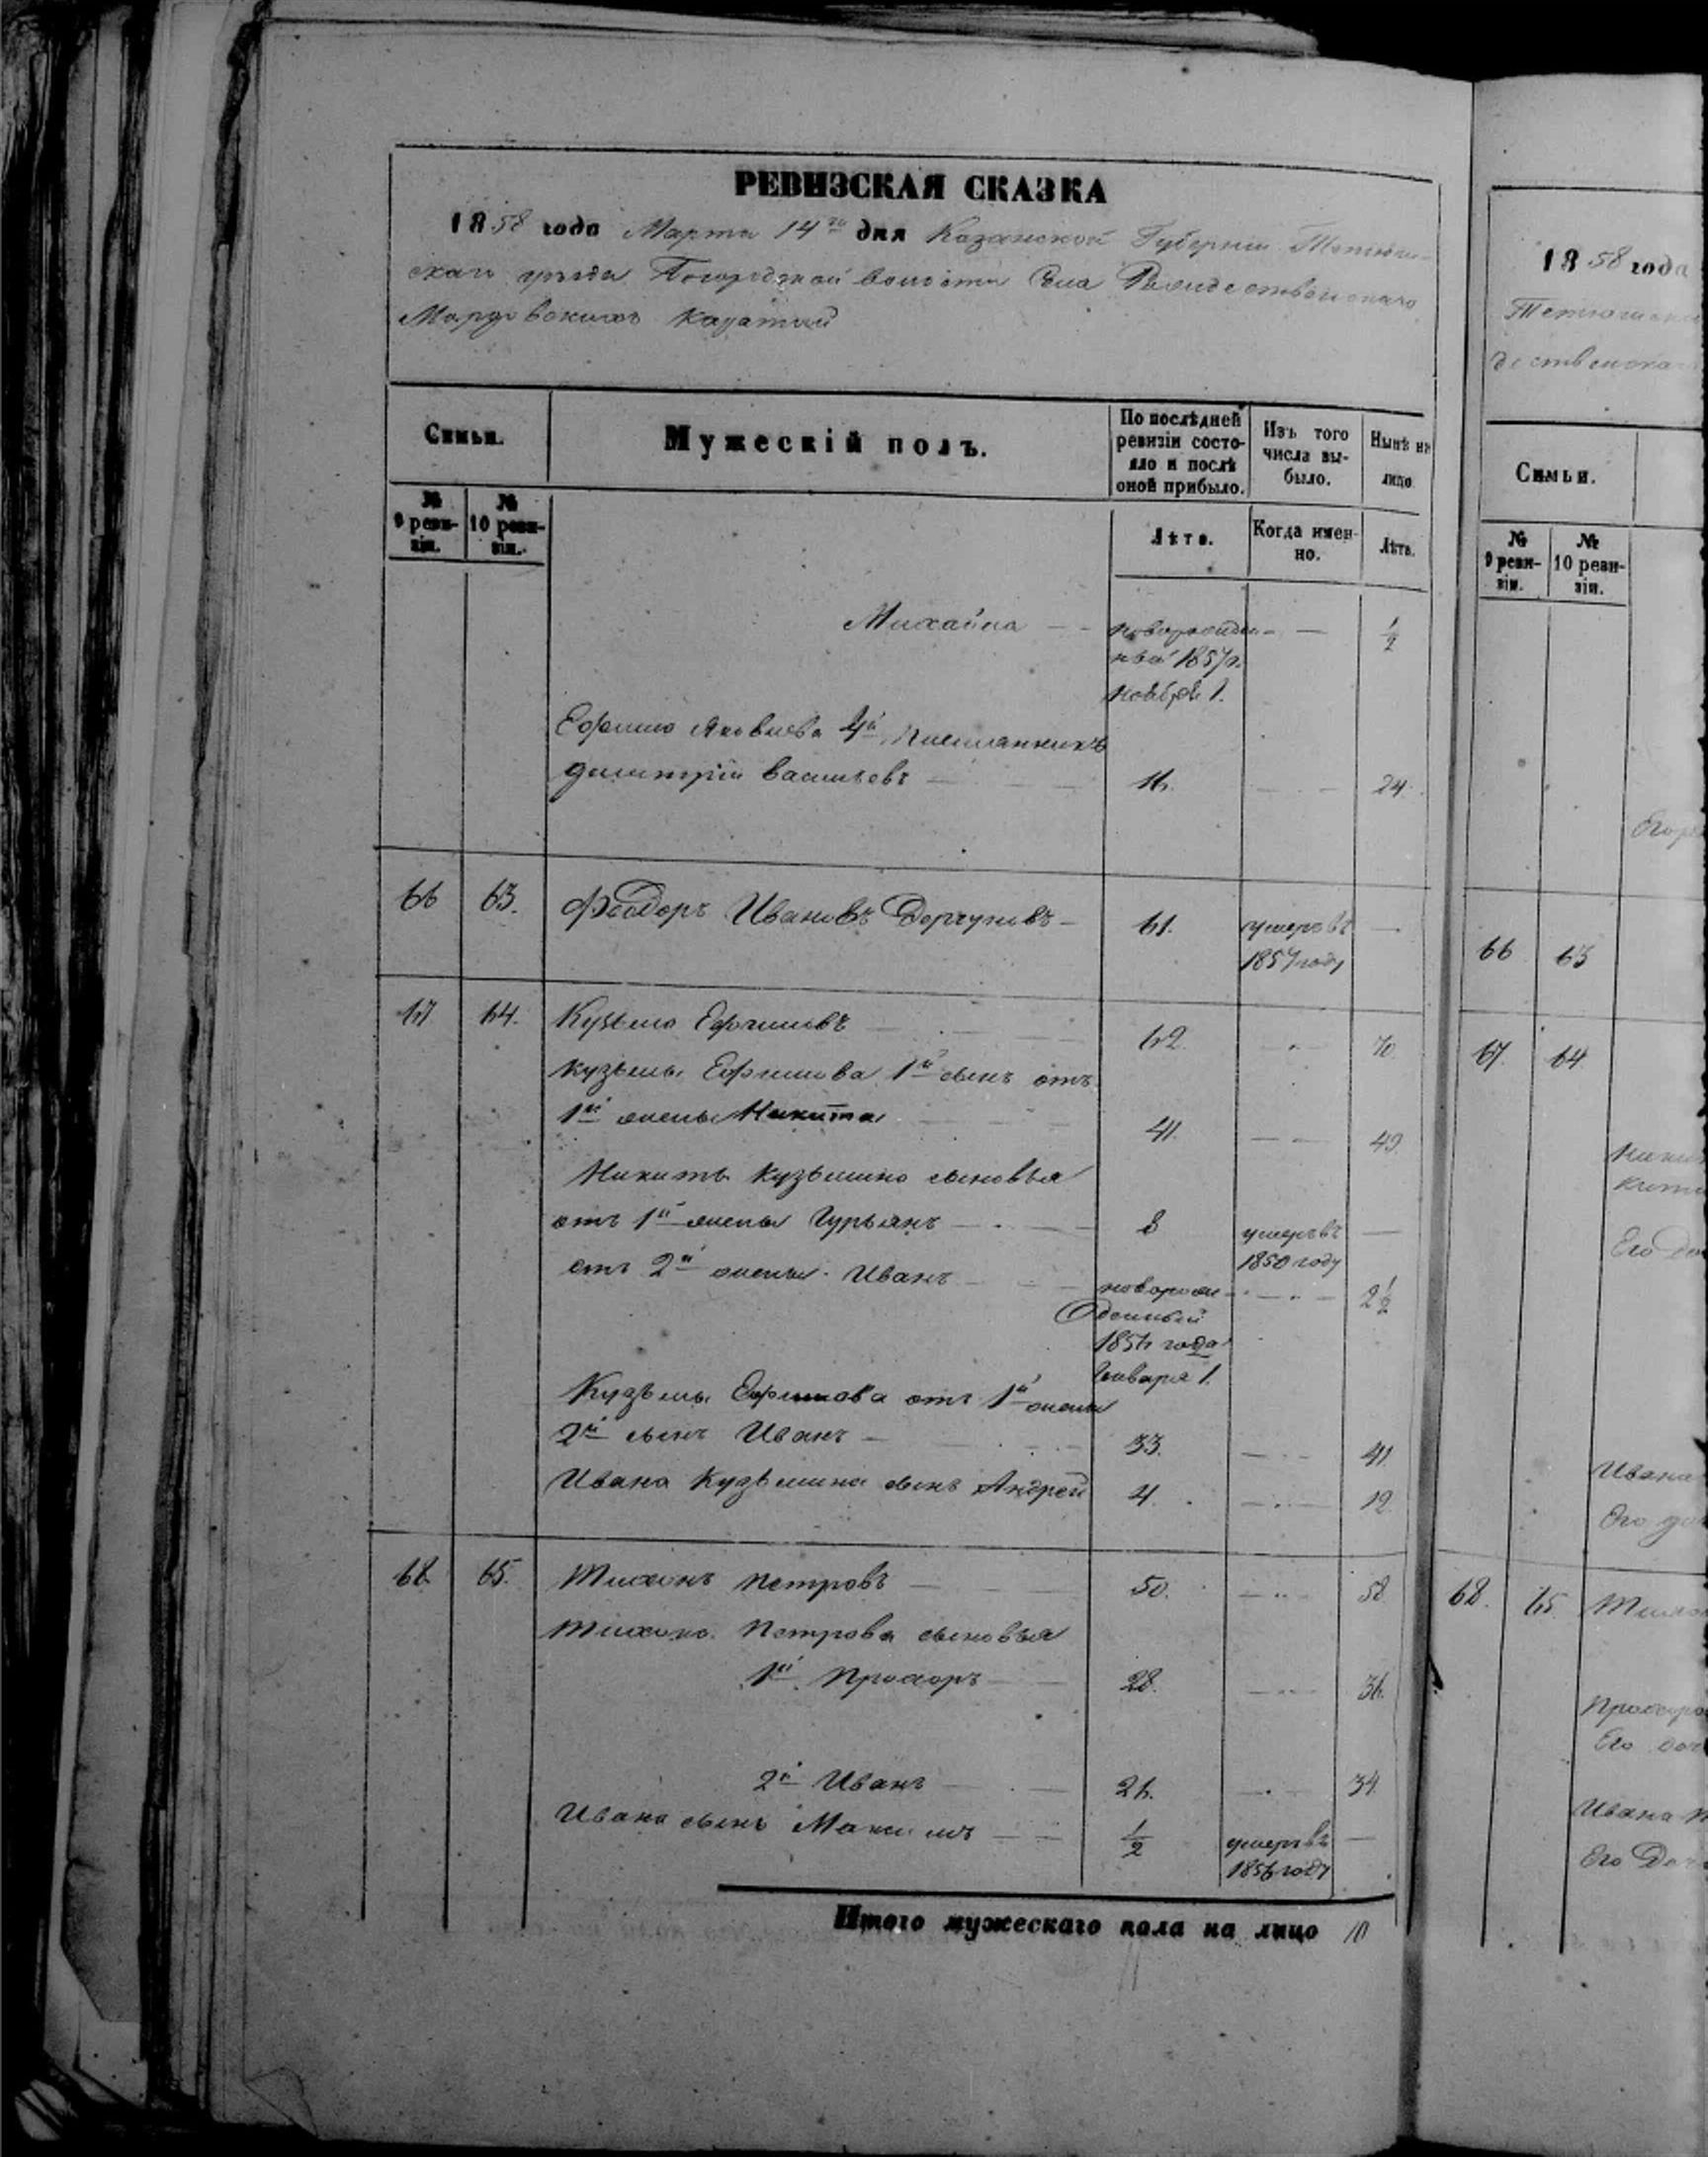 РЕВИЗСКАЯ СКАЗКА
1858 года Марта 14го дня Казанской Губернiи Тетюш-
скаго уѣзда волости Села Рождественскаго
Мордовскихъ Каратай
Семьи.
Мужескiй полъ.
По послѣдней ревизiи состо-
яло и послѣ
оной прибыло.
Изъ того
числа вы-
было.
Нынѣ на
лицо
№
9 реви-
зiи.
№
10 реви-
зiи.
Лѣта.
Когда имен-
но.
Лѣта.
Михайла — новорожден- — ½
ный 1857 г.
Ноября 1.
Ефима Яковлева 4й племянникъ
Димитрiй Васильевъ — 16. — 24.
66 63. Феодоръ Ивановъ — 61. умеръ въ —
1857 году
67 64. Кузьма Ефимовъ — 62. — 70.
Кузьмы Ефимова 1й сынъ отъ
1й жены Никита — 41. — 49.
Никиты Кузьмина сыновья
отъ 1й жены Гурьянъ — 8 умеръ въ —
1850 году
отъ 2й жены Иванъ — новорож- — 2½
денный
1856 года
Января 1.
Кузьмы Ефимова отъ 1й жены
2й сынъ Иванъ — 33. — 41.
Ивана Кузьмина сынъ Андрей 4. — 12.
68. 65. Тихонъ Петровъ — 50. — 58.
Тихона Петрова сыновья
1й Прохоръ — 28. — 36.
2й Иванъ — 26. — 34.
Ивана сынъ Максимъ — ½ умеръ въ —
1856 году
Итого мужескаго пола на лицо 10
1858 года
Тетюшска
дественска
Семьи.
№
9 реви-
зiи.
№
10 реви-
зiи.
66 63
67. 64
Его до
Ивана
Его до
68. 65. Тихо
Прохора
Его доч
Ивана
Его До